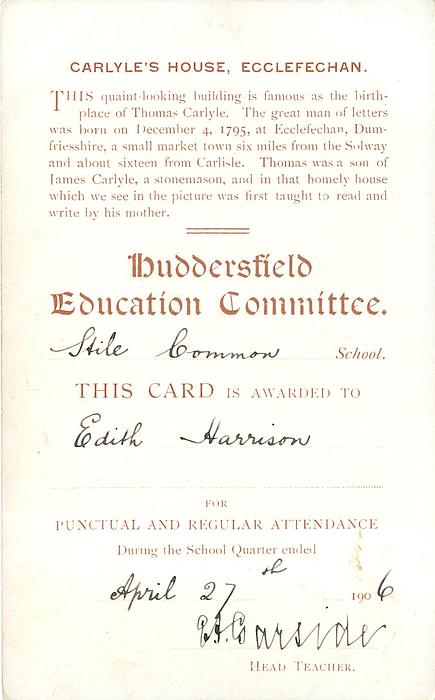 CARLYLE'S HOUSE, ECCLEFECHAN.
THIS quaint-looking building is famous as the birth-
place of Thomas Carlyle. The great man of letters
was born on December 4, 1795, at Ecclefechan, Dum-
friesshire, a small market town six miles from the Solway
and about sixteen from Carlisle. Thomas was a son of
James Carlyle, a stonemason, and in that homely house
which we see in the picture was first taught to read and
write by his mother.
Huddersfield
Education Committee.
Stile Common School.
THIS CARD IS AWARDED TO
Edith Harrison
FOR
PUNCTUAL AND REGULAR ATTENDANCE
During the School Quarter ended
April 27th 1906
E.A. Garside
HEAD TEACHER.